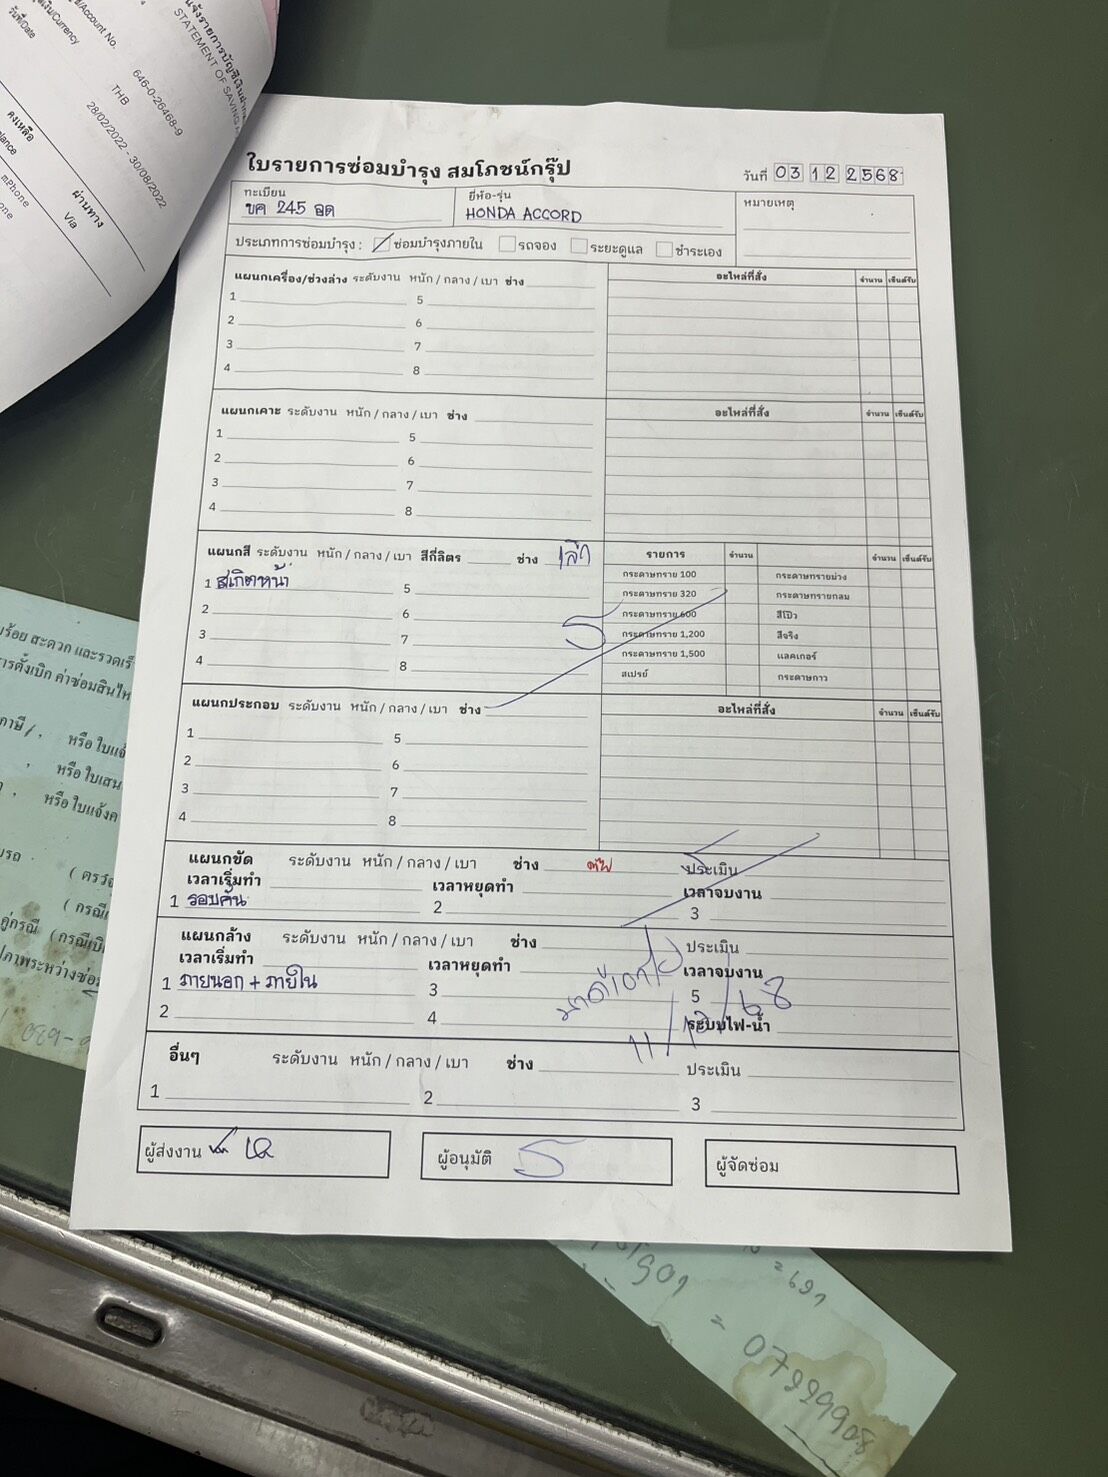 แจ้งรายการบัญชีเงินฝาก
STATEMENT OF SAVING
Account No.
646-0-26468-9
Currency
THB
วันที่/Date
28/02/2022 - 30/08/2022
คงเหลือ
ผ่านทาง
Via
mPhone
ใบรายการซ่อมบำรุง สมโภชน์กรุ๊ป
วันที่ 03 12 2568
ทะเบียน
ยี่ห้อ-รุ่น
หมายเหตุ
ขค 245 อด
HONDA ACCORD
ประเภทการซ่อมบำรุง : ซ่อมบำรุงภายใน รถจอง ระยะดูแล ชำระเอง
แผนกเครื่อง/ช่วงล่าง ระดับงาน หนัก / กลาง / เบา ช่าง
อะไหล่ที่สั่ง จำนวน เซ็นต์รับ
1 5
2 6
3 7
4 8
แผนกเคาะ ระดับงาน หนัก / กลาง / เบา ช่าง
อะไหล่ที่สั่ง จำนวน เซ็นต์รับ
1 5
2 6
3 7
4 8
แผนกสี ระดับงาน หนัก / กลาง / เบา สีกี่ลิตร ช่าง
รายการ จำนวน จำนวน เซ็นต์รับ
1 สเกิตหน้า 5
2 6
3 7
4 8
กระดาษทราย 100 กระดาษทรายม่วง
กระดาษทราย 320 กระดาษทรายกลม
กระดาษทราย 600 สีโป๊ว
กระดาษทราย 1,200 สีจริง
กระดาษทราย 1,500 แลคเกอร์
สเปรย์ กระดาษกาว
แผนกประกอบ ระดับงาน หนัก / กลาง / เบา ช่าง
อะไหล่ที่สั่ง จำนวน เซ็นต์รับ
1 5
2 6
3 7
4 8
แผนกขัด ระดับงาน หนัก / กลาง / เบา ช่าง ประเมิน
เวลาเริ่มทำ เวลาหยุดทำ เวลาจบงาน
1 รอบคัน 2 3
แผนกล้าง ระดับงาน หนัก / กลาง / เบา ช่าง ประเมิน
เวลาเริ่มทำ เวลาหยุดทำ เวลาจบงาน
1 ภายนอก + ภายใน 3 5
2 4 ระบบไฟ-น้ำ
11/12/68
อื่นๆ ระดับงาน หนัก / กลาง / เบา ช่าง ประเมิน
1 2 3
ผู้ส่งงาน
ผู้อนุมัติ
ผู้จัดซ่อม
สะดวก และรวดเร็
ค่าซ่อมสินไห
หรือ ใบแจ้
หรือ ใบเสน
หรือ ใบแจ้งค